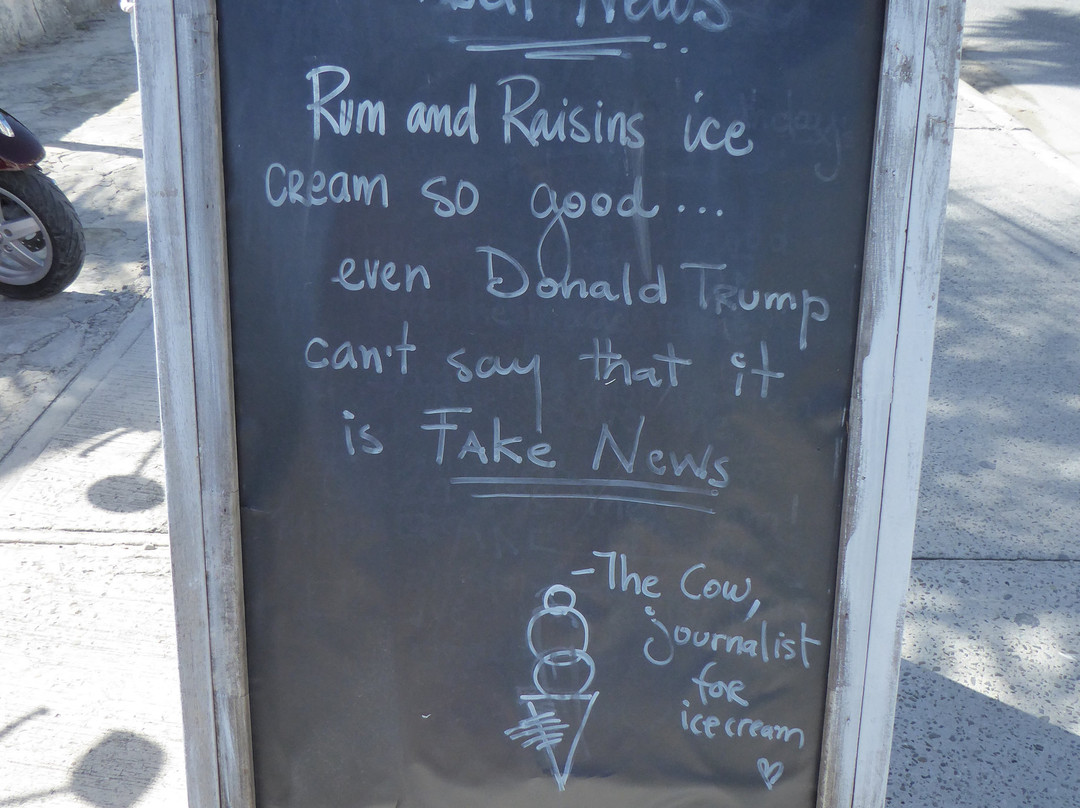 News
Rum and Raisins ice
cream so good...
even Donald Trump
can't say that it
is Fake News
-The Cow,
journalist
for
icecream